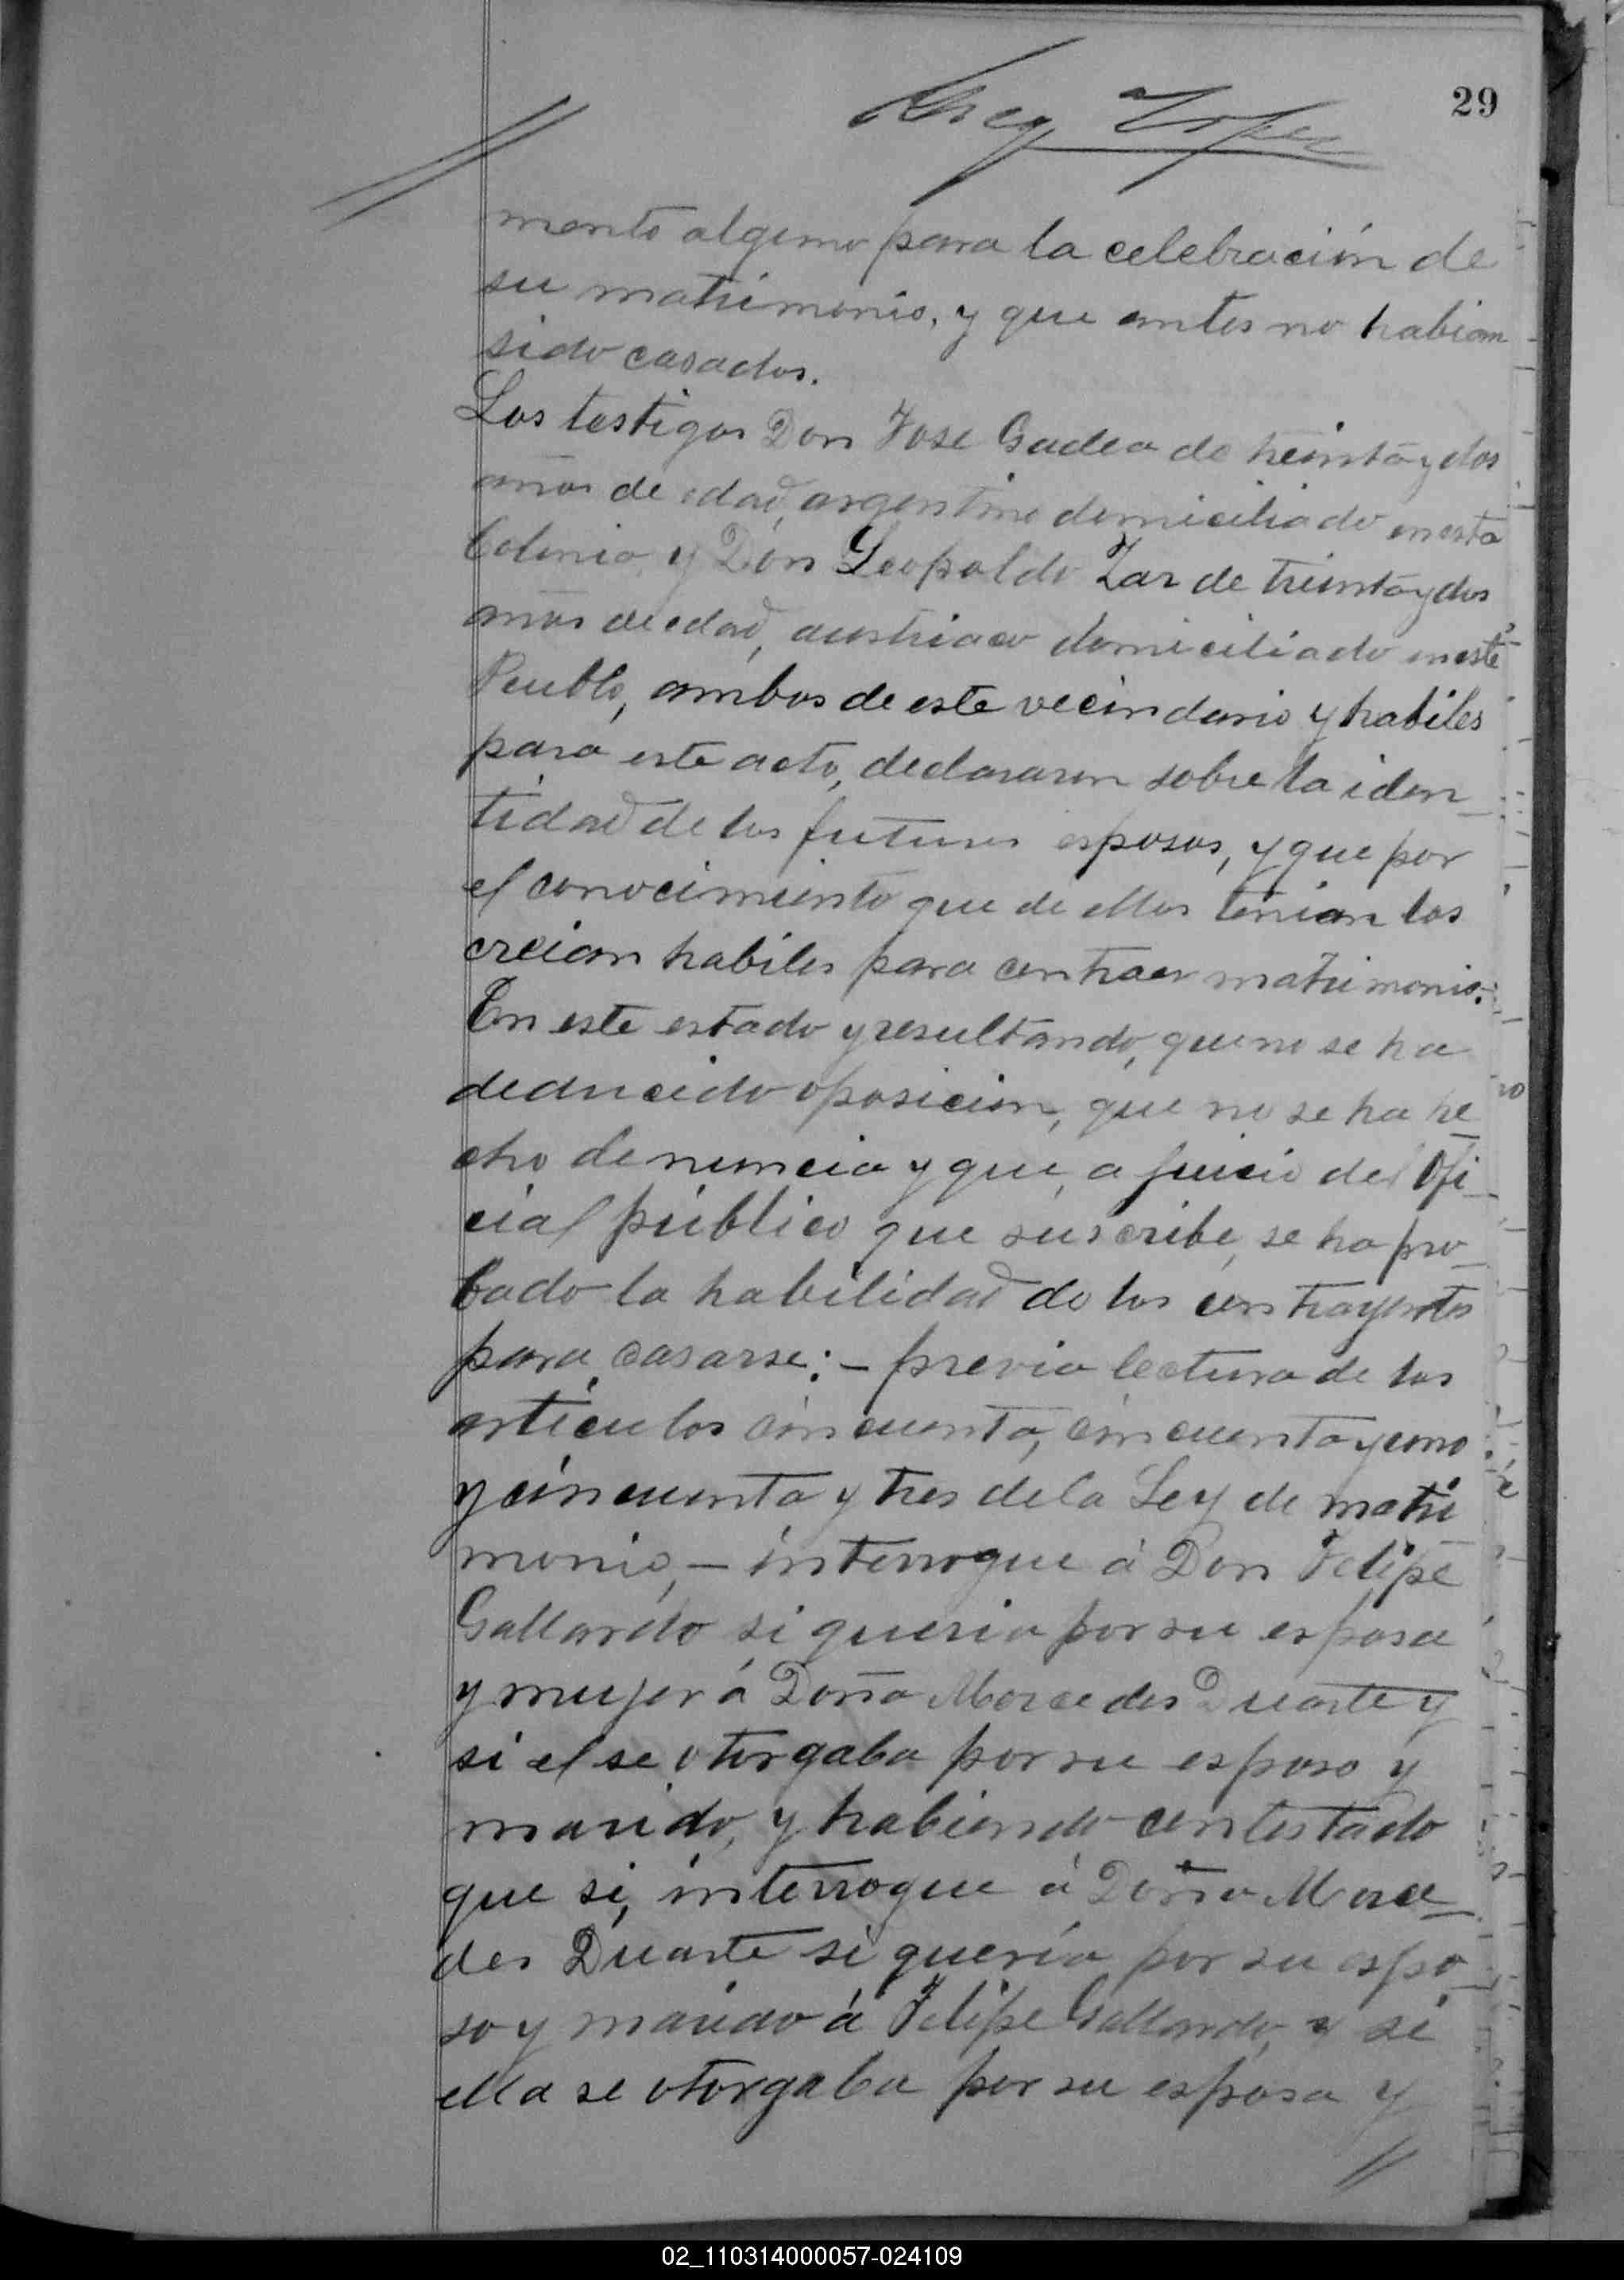 29
mento alguno para la celebración de
su matrimonio, y que antes no habian
sido casados.
Los testigos Don Jose Gadea de treinta y dos
años de edad, argentino domiciliado en esta
Colonia, y Don Leopoldo Zar de treinta y dos
años de edad, austriaco domiciliado en este
Pueblo, ambos de este vecindario y habiles
para este acto, declararon sobre la iden_
tidad de los futuros esposos, y que por
el conocimiento que de ellos tenian los
creian habiles para contraer matrimonio.
En este estado y resultando, que no se ha
deducido oposicion, que no se ha he_
cho denuncia y que, a juicio del Ofi_
cial público que suscribe, se ha pro_
bado la habilidad de los contrayentes
para casarse:_ previa lectura de los
artículos cincuenta, cincuenta y uno
y cincuenta y tres de la Ley de matri
monio,_ interrogue á Don Felipe
Gallardo si queria por su esposa
y mujer á Doña Mercedes Duarte y
si el se otorgaba por su esposo y
marido, y habiendo contestado
que si, interrogue á Doña Merce_
des Duarte si quería por su espo_
so y marido á Felipe Gallardo, y si
ella se otorgaba por su esposa y
//
02_110314000057-024109